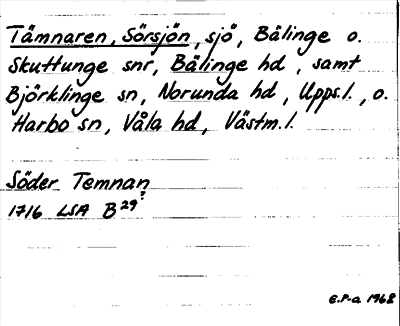 Tämnaren, Sörsjön, sjö, Bälinge o.
Skuttunge snr, Bälinge hd, samt
Björklinge sn, Norunda hd, Upps.l., o.
Harbo sn, Våla hd, Västm.l.
Söder Temnan
1716 LSA B 29?
E.P-a 1962